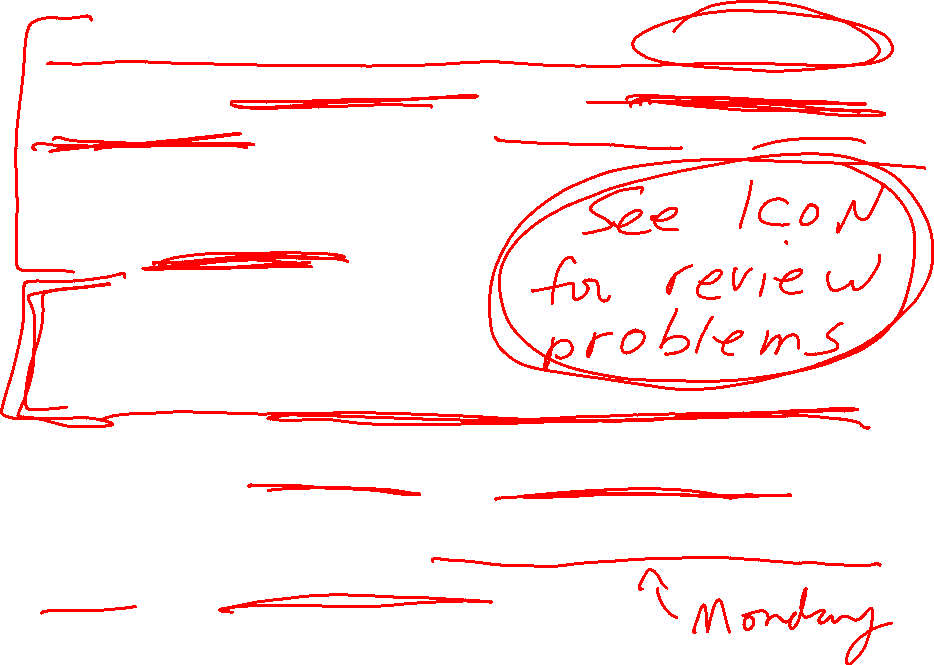 See ICON
for review
problems
Monday